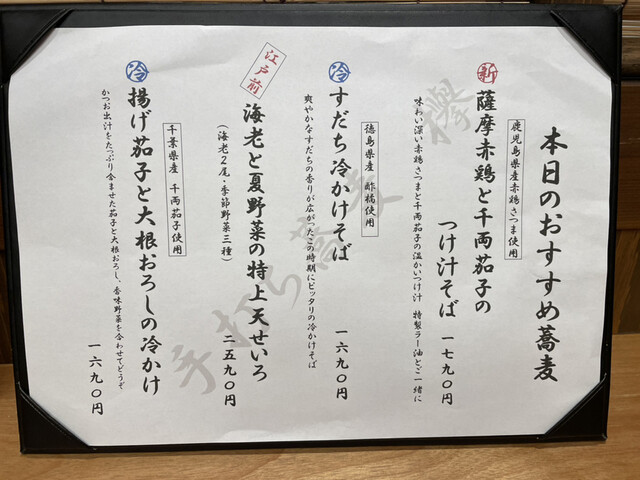 本日のおすすめ蕎麦
鹿児島県産赤鶏さつま使用
新
薩摩赤鶏と千両茄子の
つけ汁そば 一七九〇円
味わい深い赤鶏さつまと千両茄子の温かいつけ汁 特製ラー油とご一緒に
徳島県産 酢橘使用
冷
すだち冷かけそば 一六九〇円
爽やかなすだちの香りが広がったこの時期にピッタリの冷かけそば
江戸前
海老と夏野菜の特上天せいろ
(海老2尾・季節野菜三種) 二五九〇円
千葉県産 千両茄子使用
冷
揚げ茄子と大根おろしの冷かけ
かつお出汁をたっぷり含ませた茄子と大根おろし、香味野菜を合わせてどうぞ
一六九〇円
手打ち蕎麦 欅